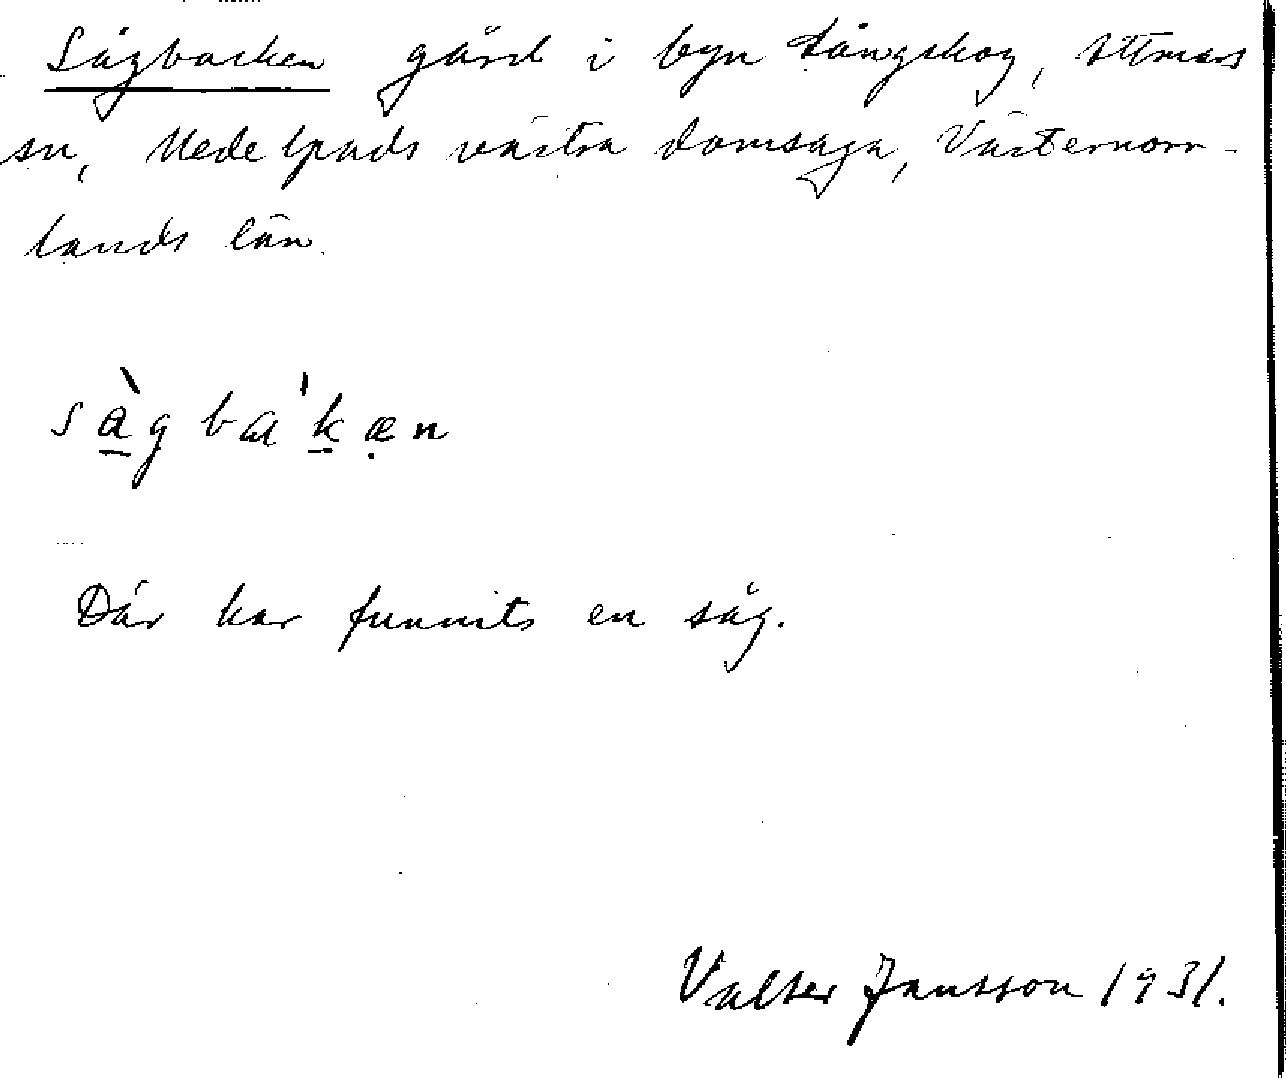 Sågbacken gård i byn Långskog, Attmars
sn, Medelpads västra domsaga, Västernorr-
lands län.
Där har funnits en såg.
Valter Jansson 1931.